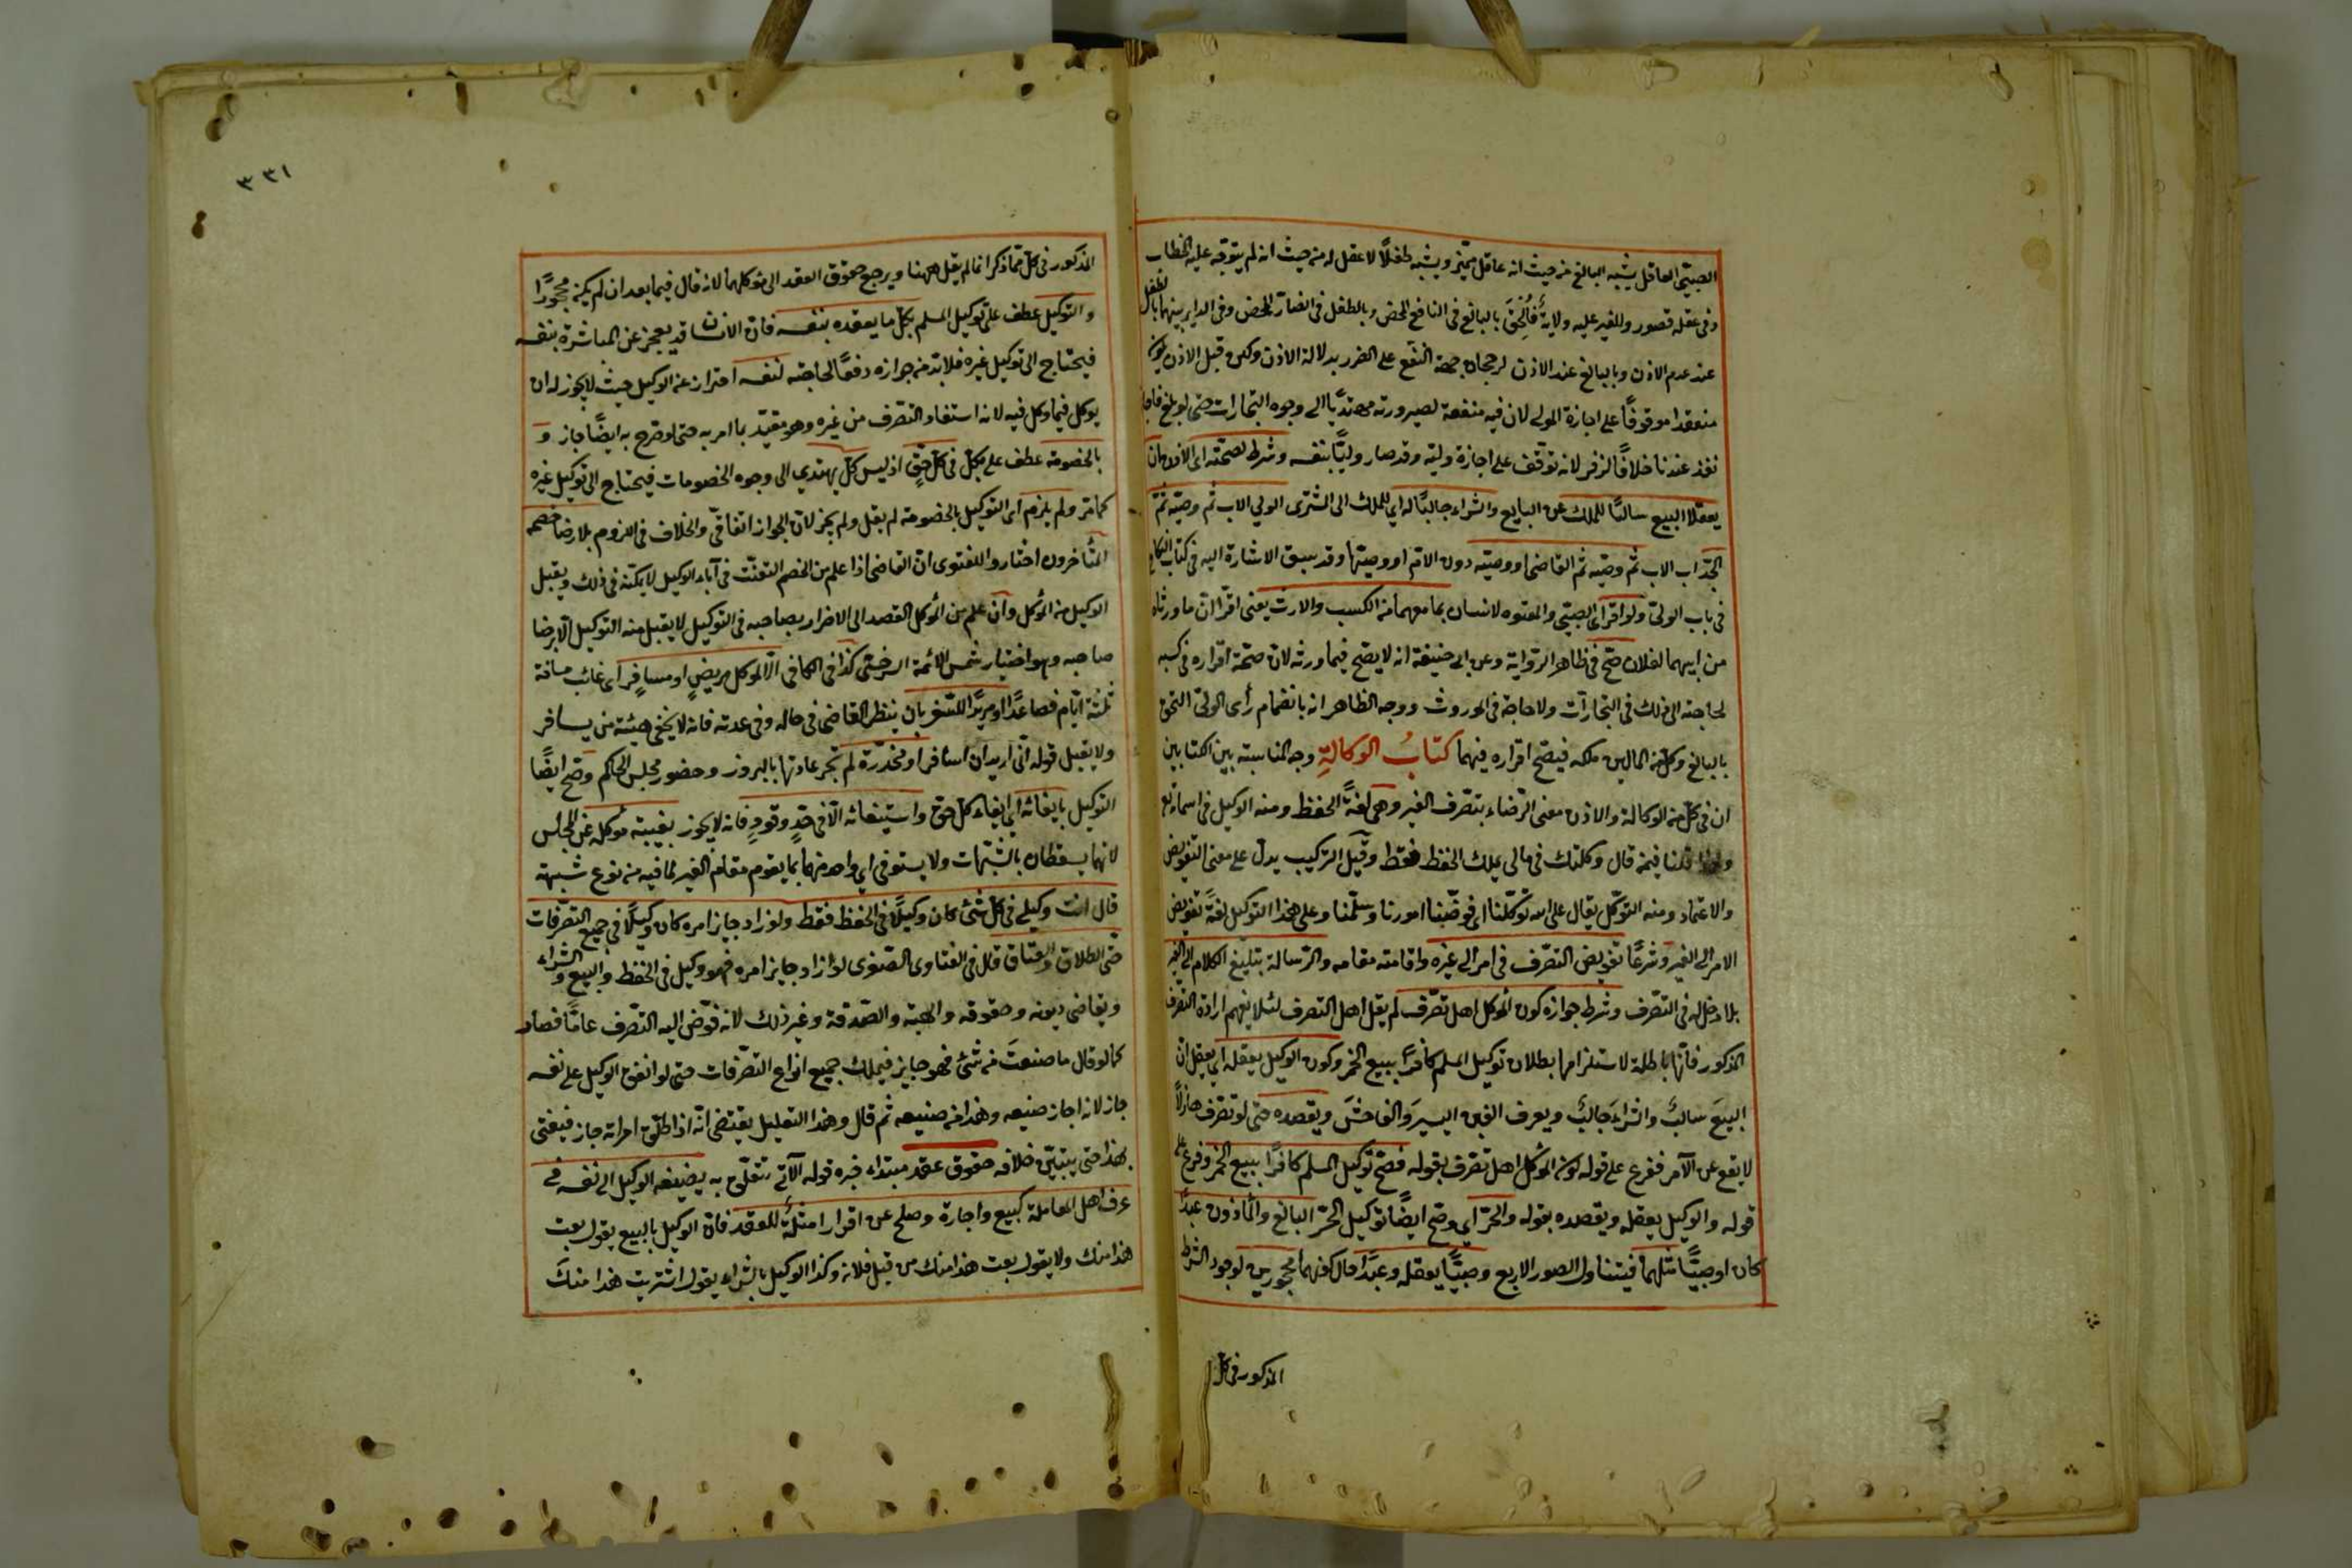 الصبي العاقل يشبه البالغ من حيث انه عاقل مميز ويشبه طفلاً لا عقل له من حيث انه لم يتوجه عليه الخطاب
وفي عقله قصور وللغير عليه ولاية فأُلحِقَ بالبالغ في النافع المحض وبالطفل في الضار المحض وفي الداير بينهما بالطفل
عند عدم الاذن وبالبالغ عند الاذن لرجحان جهة النفع على الضرر بدلالة الاذن ولكن قبل الاذن يكون
منعقدا موقوفًا على اجازة المولى لان فيه منفعة لصيرورته مهتديًا الى وجوه التجارات حتى لو بلغ فاجاز
نفذ عندنا خلافًا لزفر لانه توقف على اجازة وليه وقد صار وليًّا بنفسه وشرط لصحته اى الاذن ان
يعقلا البيع سالبًا للملك عن البايع والشراء جالبًا له اي للملك الى المشترى الولي الاب ثم وصيه ثم
الجد اب الاب ثم وصيه ثم القاضي او وصيه دون الام او وصيها وقد سبق الاشارة اليه في كتاب النكاح
في باب الولي ولو اقر اى الصبي والمعتوه لانسان بما معهما من الكسب والارث يعني اقرا ان ما ورثاه
من ابيهما لفلان صح في ظاهر الرواية وعن ابي حنيفة انه لا يصح فيما ورثه لان صحة اقراره في كسبه
لحاجته الى ذلك في التجارات ولا حاجة في الموروث ووجه الظاهر انه بانضمام رأى الولي التحق
بالبالغ وكل من المالين ملكه فيصح اقراره فيهما كتابُ الوكالةِ وجه المناسبة بين الكتابين
ان في كل من الوكالة والاذن معنى الرضاء بتصرف الغير وهي لغةً الحفظ ومنه الوكيل في اسمائه تع
ولهذا قلنا فيمن قال وكلتك في مالي يملك الحفظ فقط وقيل التركيب يدل على معنى التفويض
والاعتماد ومنه التوكّل يقال على الله توكّلنا اى فوّضنا امورنا وسلّمنا وعلى هذا التوكيل لغةً تفويض
الامر الى الغير وشرعًا تفويض التصرف في امر الى غيره واقامته مقامه والرسالة تبليغ الكلام الى الغير
بلا دخل له في التصرف وشرط جوازه كون الموكل اهل تصرف لم يقل اهل التصرف لئلا يفهم ارادة التصرف
المذكور فانّها باطلة لاستلزامها بطلان توكيل المسلم كافرًا ببيع الخمر وكون الوكيل يعقله اي يعقل ان
البيعَ سالبٌ والشراءَ جالبٌ ويعرف الغبن اليسيرَ والفاحشَ ويقصده حتى لو تصرف هازلاً
لا يقع عن الآمر ففرع على قوله كون الموكل اهل تصرف بقوله فصح توكيل المسلم كافرًا ببيع الخمر وفرع على
قوله والوكيل يعقله ويقصده بقوله والحرّ اي وصح ايضًا توكيل الحرّ البالغ والمأذون عبدًا
كان او صبيًّا مثلهما فيتناول الصور الاربع وصبيًّا يعقله وعبدًا حال كونهما محجورين لوجود الشرط
المذكور في كل
٣٣١
المذكور في كل مما ذكر انما لم يقل ههنا ويرجع حقوق العقد الى موكلهما لانه قال فيما بعد ان لم يكن محجورًا
والتوكيل عطف على توكيل المسلم بكل ما يعقده بنفسه فان الانسان قد يعجز عن المباشرة بنفسه
فيحتاج الى توكيل غيره فلابد من جوازه دفعًا لحاجته لنفسه احتراز عن الوكيل حيث لا يجوز له ان
يوكل فيما وكل فيه لانه استفاد التصرف من غيره وهو مقيّد بما امر به حتى لو صرح به ايضًا جاز و
بالخصومة عطف على بكل في كل حقٍ اذ ليس كل يهتدي الى وجوه الخصومات فيحتاج الى توكيل غيره
كما مرّ ولم يلزم اى التوكيل بالخصومة لم يقل ولم يجز لان الجواز اتفاقي والخلاف في اللزوم بلا رضا خصمه
المتأخرون اختاروا للفتوى ان القاضي اذا علم من الخصم التعنّت في آباء الوكيل لا يمكّنه في ذلك ويقبل
الوكيل من الموكل وان علم من الموكل القصد الى الاضرار بصاحبه في التوكيل لا يقبل منه التوكيل الّا برضا
صاحبه وهو اختيار شمس الائمة السرخسي كذا في الكافي الّا لموكل مريضٍ او مسافرٍ اى غائب مسافة
ثلثة ايّام فصاعدًا او مريدًا للسفر بان ينظر القاضي في حاله وفي عدته فانه لا يخفى هيئة من يسافر
ولا يقبل قوله انّي اريد ان اسافر او مخدّرة لم تجر عادتها بالبروز وحضور مجلس الحاكم وصح ايضًا
التوكيل بايفائه اي ايفاء كل حق واستيفائه الّا في حدٍ وقودٍ فانه لا يجوز بغيبته موكله عن المجلس
لانهما يسقطان بالشبهات ولا يستوفى اي واحد منهما بما يقوم مقام الغير لما فيه من نوع شبهة
قال انت وكيلي في كل شئ كان وكيلًا في الحفظ فقط ولو زاد جايز امره كان وكيلًا في جميع التصرفات
حتى الطلاق والعتاق قال في الفتاوى الصغرى لو زاد جايز امره فهو وكيل في الحفظ والبيع والشراء
ويقاضي ديونه وحقوقه والهبة والصدقة وغير ذلك لانه فوّض اليه التصرف عامًا فصار
كما لو قال ما صنعتَ من شئ فهو جايز فيملك جميع انواع التصرفات حتى لو انفق الوكيل على نفسه
جاز لانه اجاز صنيعه وهذا من صنيعه ثم قال وهذا التعليل يقتضي انّه اذا طلّق امراته جاز فيفتى
بهذا حتى يتبيّن خلافه حقوق عقد مبتداء خبره قوله الآتي تتعلّق به يضيفه الوكيل الى نفسه في
عرف اهل المعاملة كبيع واجارة وصلح عن اقرار امثلة للعقد فان الوكيل بالبيع يقول بعت
هذا منك ولا يقول بعت هذا منك من قبل فلان وكذا الوكيل بالشراء يقول اشتريت هذا منكَ